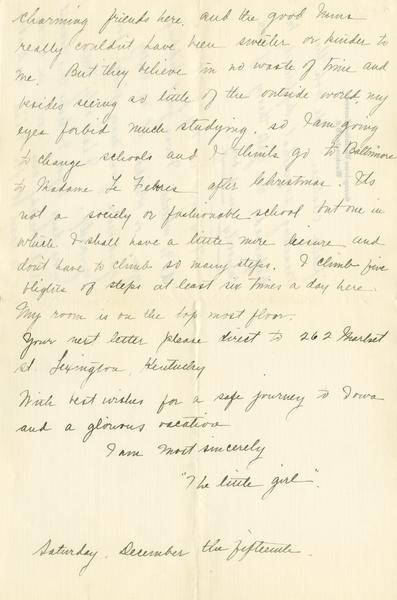 charming friends here, and the good Nuns
really couldn't have been sweeter or kinder to
me. But they believe in no waste of time and
besides seeing so little of the outside world, my
eyes forbid much studying, so I am going
to change schools and I think go to Baltimore
to Madame Le Febres after Christmas. Its
not a society or fashionable school but one in
which I shall have a little more leisure and
don't have to climb so many steps. I climb five
flights of steps at least six times a day here.
My room is on the top most floor.
Your next letter please direct to 262 Market
st. Lexington, Kentucky
With best wishes for a safe journey to Iowa
and a glorious vacation
I am most sincerely
"The little girl".
Saturday, December the fifteenth.